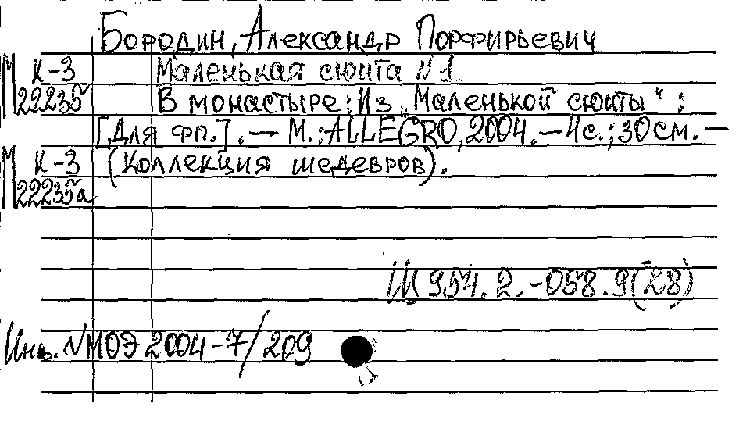 Бородин, Александр Порфирьевич
М К-3 Маленькая сюита N 1
22235 В монастыре: Из „Маленькой сюиты":
[Для фп.]. — М.: ALLEGRO, 2004. — 4с.; 30см. —
М К-3 (Коллекция шедевров).
22235а
Ш 954.2.-058.9(28)
Инв. NМОЭ 2004-7/209